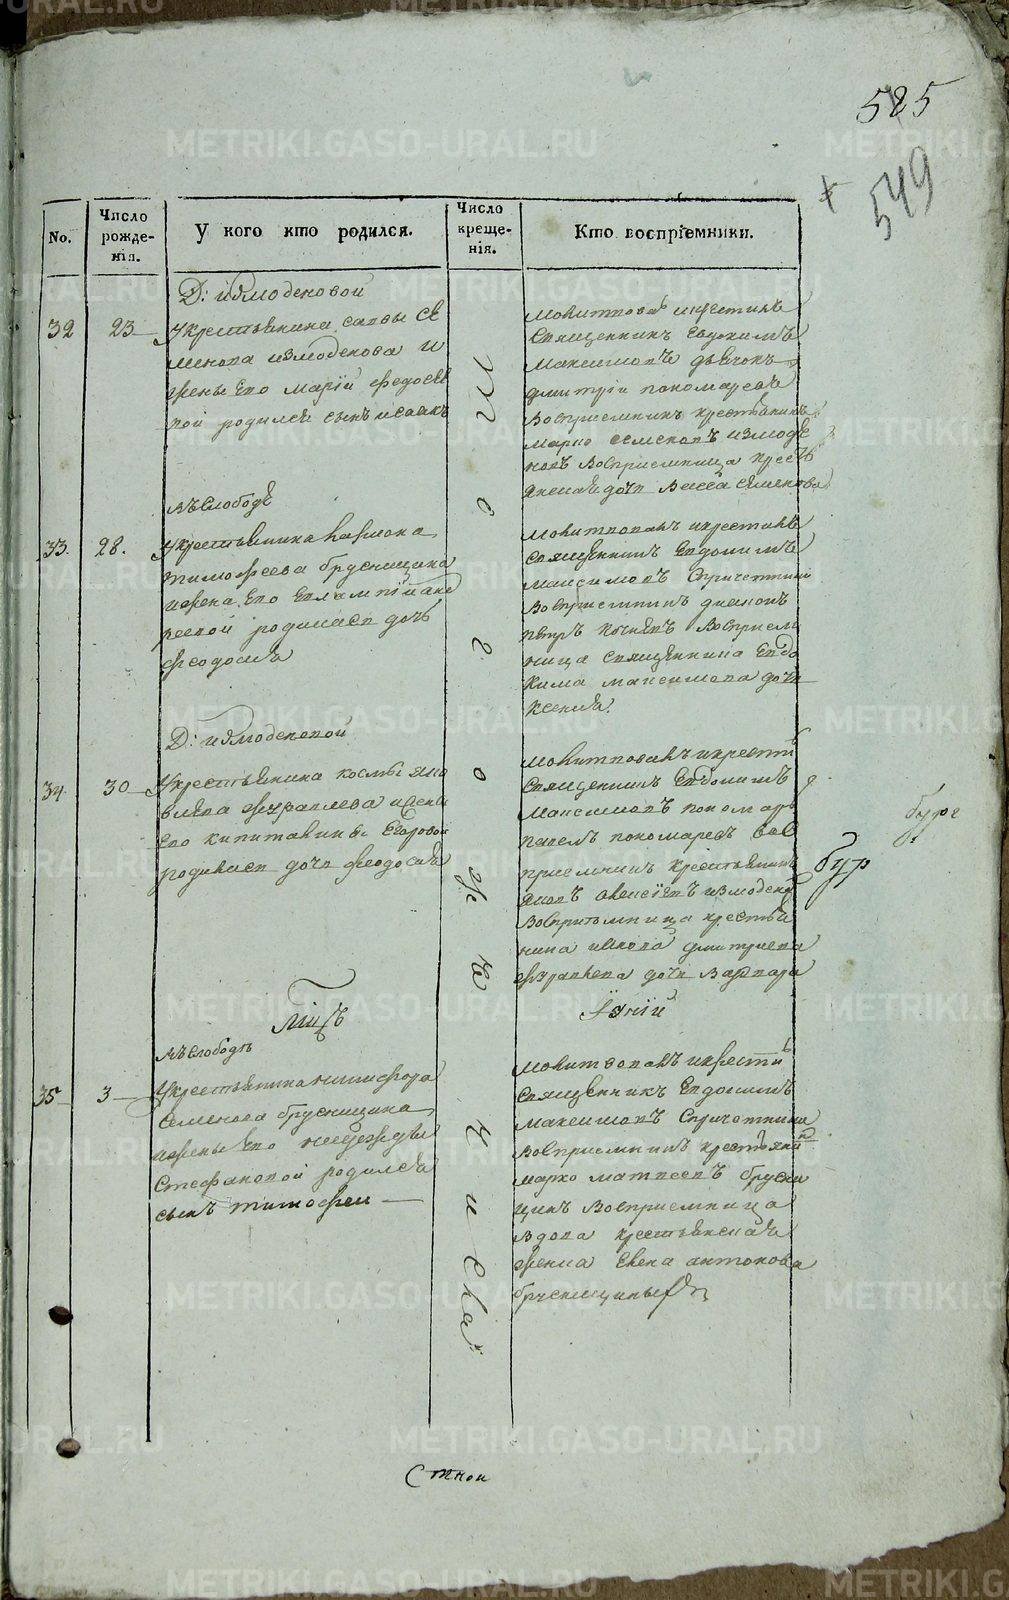 525
549
No.
Число рожденія.
У кого кто родился.
Число крещенія.
Кто воспріемники.
Д: измоденовой
32
23
У крестьянина саввы се
менова измоденова и
жены его маріи федосее
вой родился сынъ исаакъ
молитвовалъ и крестилъ
священникъ евдокимъ
максимовъ дьячокъ
дмитріи пономаревъ
восприемникъ крестьянинъ
марко семеновъ измоде
новъ восприемница кресть
янская дочь васса семенова
того же числа
въ слободе
33.
28.
У крестьянина
тимофеева брусницина
и жена его евлампіи
родилась дочь
феодосия
молитвовалъ и крестилъ
священникъ евдокимъ
максимовъ с причетники
восприемникъ диаконъ
петръ восприем
ница священника евдо
кима максимова дочь
ксения.
Д: измоденовой
34.
30
У крестьянина космы яко
влева журавлева и жена
его капиталины егоровой
родилась дочь феодосия
молитвовалъ и крести
священникъ евдокимъ
максимовъ пономарь
павелъ пономаревъ вос
приемникъ крестьянинъ
яковъ алексеевъ измоденов
восприемница крестья
нина дмитриева
журавлева дочь варвара
бур
Іюній
въ слободе
35
3
У крестьянина никифора
семенова брусницина
и жены его надежды
стефановой родился
сынъ тимофеи
молитвовалъ и крести
священникъ евдокимъ
максимовъ с причетники
восприемникъ крестьянин
марко матвеевъ брусни
цинъ восприемница
вдова крестьянская
женка елена антонова
брусницины
METRIKI.GASO-URAL.RU